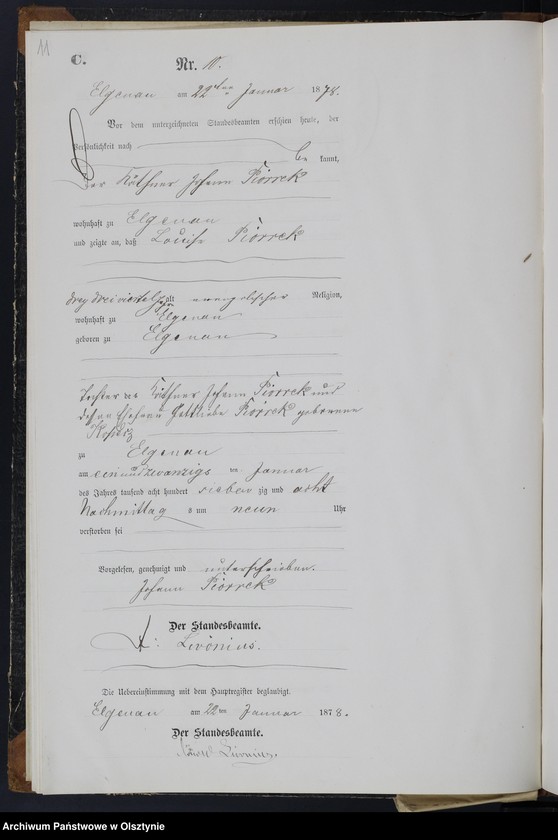 11
C.
Nr. 10.
Elgenau am 22ten Januar 1878.
Vor dem unterzeichneten Standesbeamten erschien heute, der
Persönlichkeit nach
be kannt,
der Käthner Johann Piorrek
wohnhaft zu Elgenau
und zeigte an, daß Louise Piorrek
drey dreiviertel Jahr alt evangelischer Religion,
wohnhaft zu Elgenau
geboren zu Elgenau
Tochter des Käthner Johann Piorrek und
dessen Ehefrau Gottliebe Piorrek geborenen
zu Elgenau
am einundzwanzigs ten Januar
des Jahres tausend acht hundert sieben zig und acht
Nachmittag s um neun Uhr
verstorben sei
Vorgelesen, genehmigt und unterschrieben.
Johann Piorrek
Der Standesbeamte.
Livonius.
Die Uebereinstimmung mit dem Hauptregister beglaubigt.
Elgenau am 22ten Januar 1878.
Der Standesbeamte.
Livonius.
Archiwum Państwowe w Olsztynie